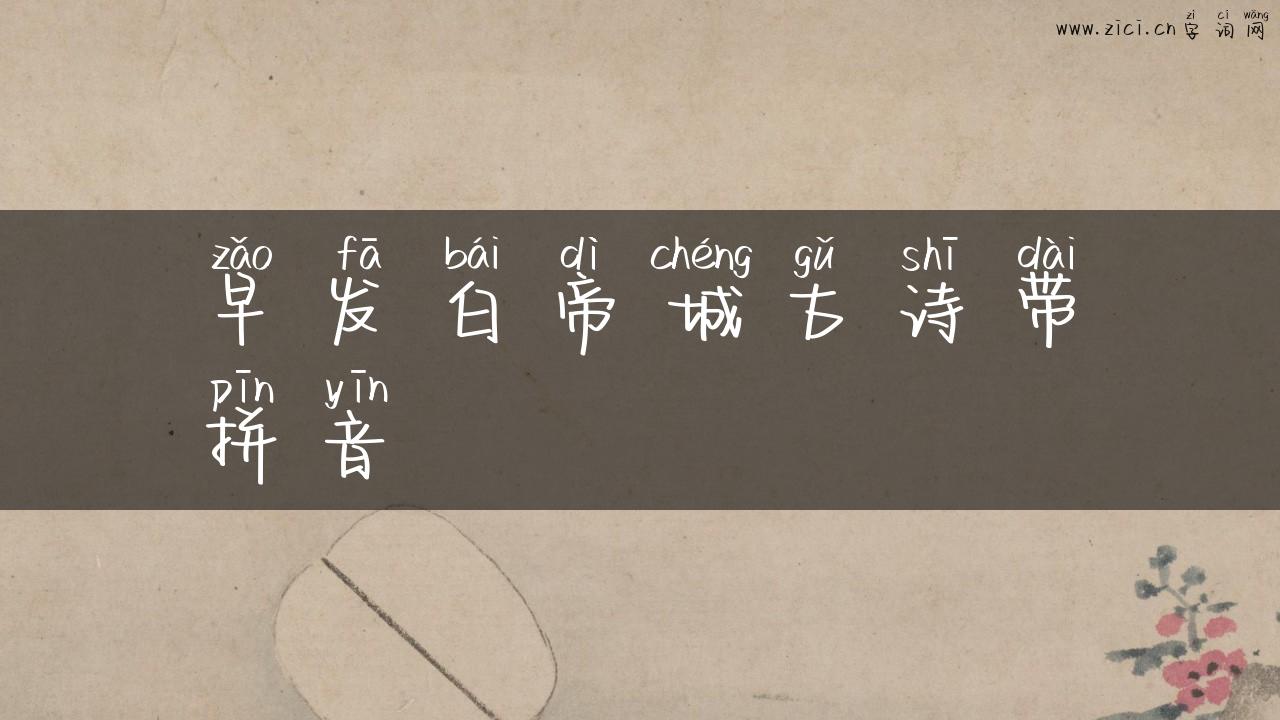 zì cí wǎng
www.zici.cn 字词网
zǎo fā bái dì chéng gǔ shī dài
早发白帝城古诗带
pīn yīn
拼音